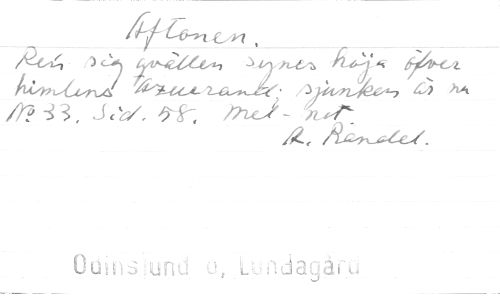 Aftonen.
Ren sig qvällen synes höja öfver
himlens Azurrand; sjunken är nu
No 33. Sid. 58. Mel-not
A. Randel.
Odinslund o, Lundagård